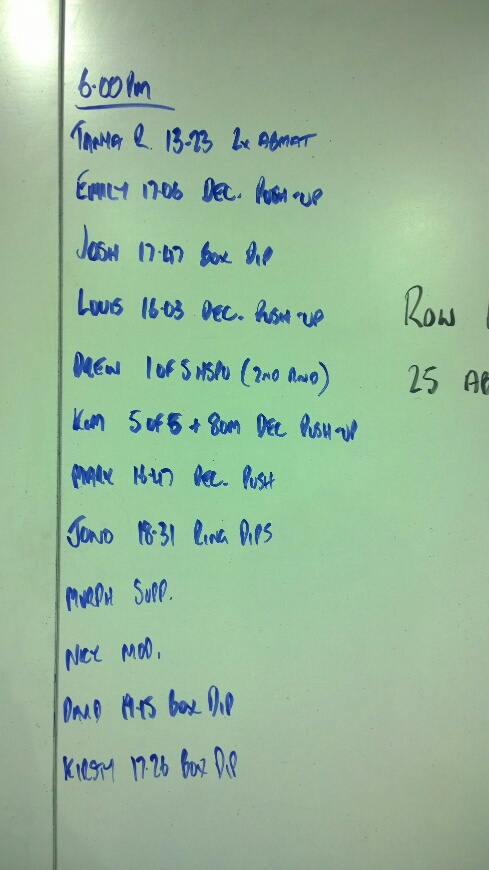 6.00 PM
TANYA R. 13-23 2x ABMAT
EMILY 17-06 DEC. PUSH-UP
JOSH 17-47 BOX DIP
LOUIS 16-03 DEC. PUSH-UP
ROW
DREW 1 OF 5 HSPU (2ND RND)
25 AB
KIM 5 OF 5 + 80M DEC PUSH-UP
MARK 16-47 DEC. PUSH
JONO 18-31 RING DIPS
MURPH SUPP.
NICK MOD.
19-15 BOX DIP
17-26 BOX DIP